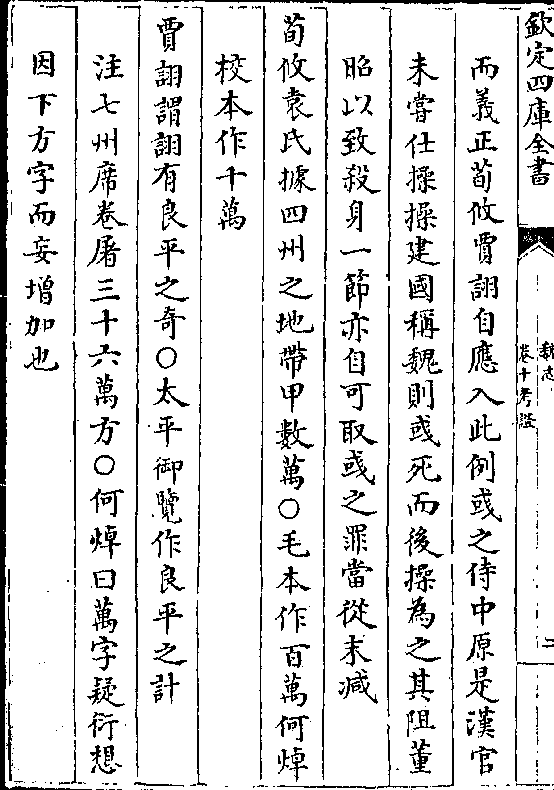 欽定四庫全書
魏志
卷十考證
二
而義正荀攸賈詡自應入此例彧之侍中原是漢官
未嘗仕操操建國稱魏則彧死而後操為之其阻董
昭以致殺身一節亦自可取彧之罪當從末減
荀攸袁氏據四州之地帶甲數萬○毛本作百萬何焯
校本作十萬
賈詡謂詡有良平之奇○太平御覽作良平之計
注七州席卷屠三十六萬方○何焯曰萬字疑衍想
因下方字而妄增加也